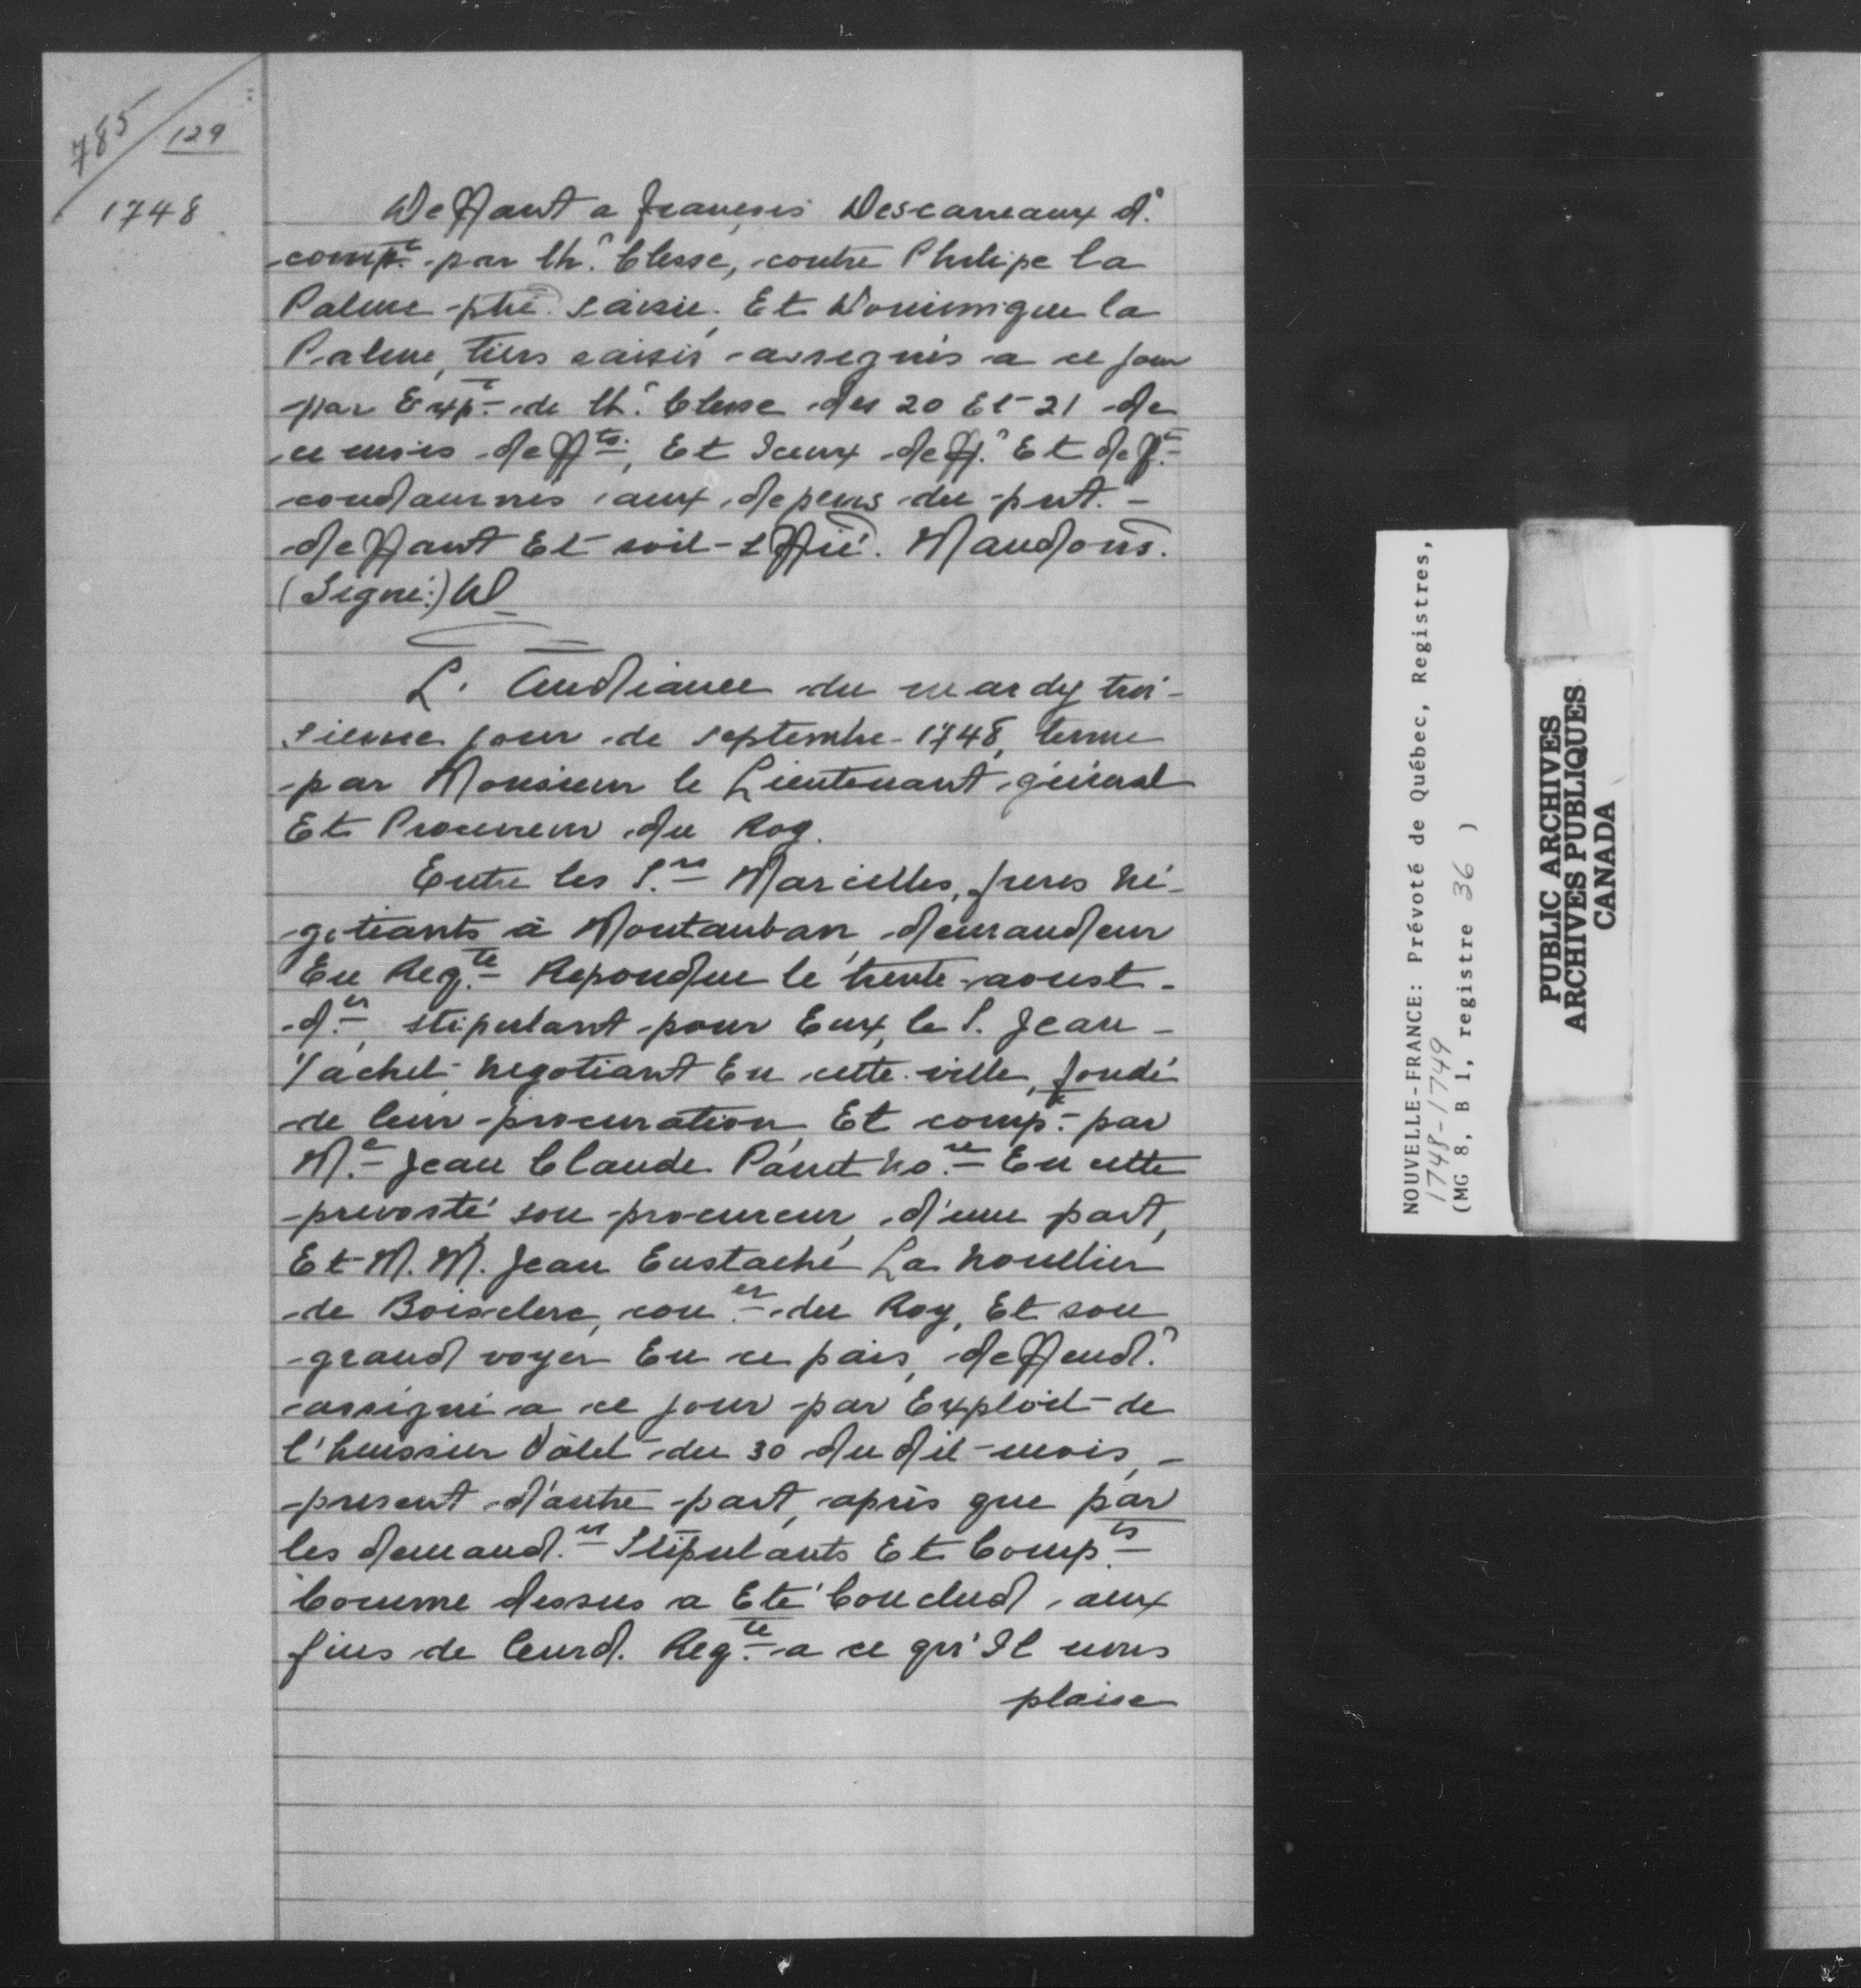 785
129
1748
Deffaut a françois Descarreaux d.r
comp.t par lh.r Clesse, contre Philipe la
Palme ptie. saisie. Et Dominique la
Palme, tiers saisis assignés a ce jour
par Exp.t de lh.r Clesse des 20 Et 21 de
ce mois deff.ts, Et Iceux deff.r Et def.t
condamnés aux depens du pnt.
deffaut Et soit siffié. Mandons.
(Signé:) D
L'Audiance du mardy troi-
sieme jour de septembre 1748, tenue
par Monsieur le Lieutenant général
Et Procureur du Roy.
Entre les S.rs Marcilles, freres né-
gotiants à Montauban demandeur
En Req.te Repondue le trente aoust
d.er, stipulant pour Eux, le S. Jean
Tachet negotiant En cette ville, fondé
de leur procuration Et comp.t par
M.e Jean Claude Panet no.re En cette
prevosté son procureur, d'une part,
Et M. M. Jean Eustache La noullier
de Boisclerc, con.er du Roy, Et son
grand voyer En ce pais, deffend.r
assigné a ce jour par Exploit de
l'huissier Vâlet du 30 du dit mois,
present d'autre part, après que par
les demand.rs Stipulants Et Comp.ts
Comme dessus a Eté Conclud aux
fins de leurd. Req.te a ce qu'Il nous
plaise
NOUVELLE-FRANCE: Prévoté de Québec, Registres,
1748-1749
(MG 8, B 1, registre 36 )
PUBLIC ARCHIVES
ARCHIVES PUBLIQUES
CANADA